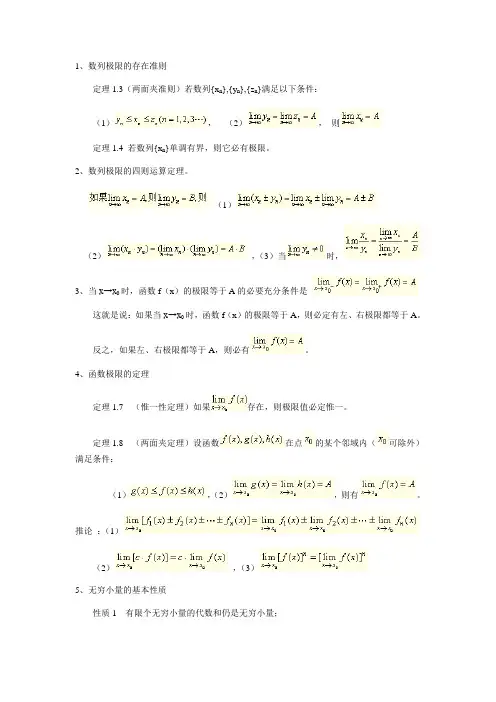 1、数列极限的存在准则
定理1.3（两面夹准则）若数列{xₙ},{yₙ},{zₙ}满足以下条件：
（1）yₙ ≤ xₙ ≤ zₙ (n=1,2,3⋯)， （2）lim_{n→∞} yₙ = lim_{n→∞} zₙ = A， 则 lim_{n→∞} xₙ = A
定理1.4 若数列{xₙ}单调有界，则它必有极限。
2、数列极限的四则运算定理。
如果lim_{n→∞} xₙ = A,则lim_{n→∞} yₙ = B,则 （1）lim_{n→∞}(xₙ ± yₙ) = lim_{n→∞} xₙ ± lim_{n→∞} yₙ = A ± B
（2）lim_{n→∞}(xₙ · yₙ) = (lim_{n→∞} xₙ) · (lim_{n→∞} yₙ) = A · B ，（3）当lim_{n→∞} yₙ ≠ 0时，lim_{n→∞} xₙ/yₙ = lim_{n→∞} xₙ / lim_{n→∞} yₙ = A/B
3、当x→x₀时，函数f（x）的极限等于A的必要充分条件是 lim_{x→x₀⁻} f(x) = lim_{x→x₀⁺} f(x) = A
这就是说：如果当x→x₀时，函数f（x）的极限等于A，则必定有左、右极限都等于A。
反之，如果左、右极限都等于A，则必有lim_{x→x₀} f(x) = A。
4、函数极限的定理
定理1.7 （惟一性定理）如果lim_{x→x₀} f(x)存在，则极限值必定惟一。
定理1.8 （两面夹定理）设函数f(x),g(x),h(x)在点x₀的某个邻域内（x₀可除外）
满足条件：
（1）g(x) ≤ f(x) ≤ h(x)，（2）lim_{x→x₀} g(x) = lim_{x→x₀} h(x) = A，则有lim_{x→x₀} f(x) = A。
推论：（1）lim_{x→x₀}[f₁(x) ± f₂(x) ± ⋯ ± fₙ(x)] = lim_{x→x₀} f₁(x) ± lim_{x→x₀} f₂(x) ± ⋯ ± lim_{x→x₀} fₙ(x)
（2）lim_{x→x₀}[c · f(x)] = c · lim_{x→x₀} f(x) ，（3）lim_{x→x₀}[f(x)]ⁿ = [lim_{x→x₀} f(x)]ⁿ
5、无穷小量的基本性质
性质1 有限个无穷小量的代数和仍是无穷小量；